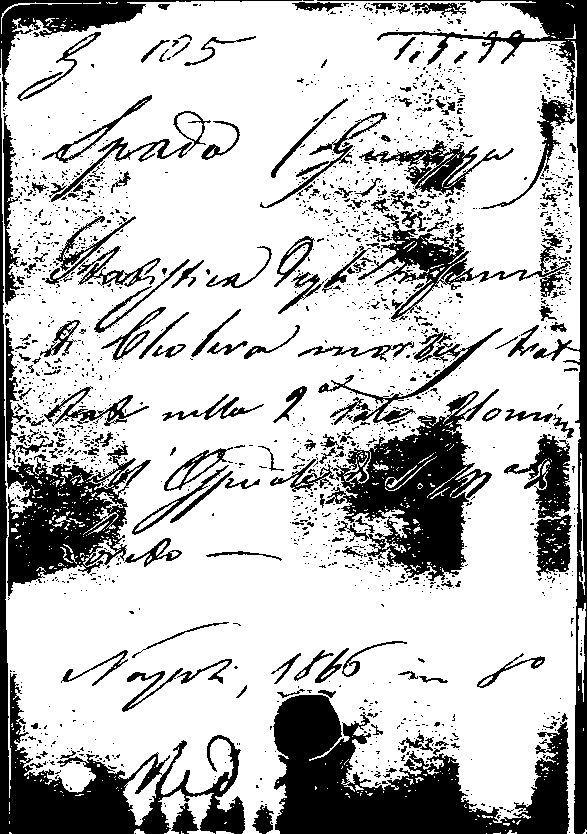 G. 105 1.5.99
Spada (Giuseppe)
Statistica degli Infermi
di Cholera morbus trat=
tati nella 2ª Sala Uomini
dell' Ospedale di S. Mª di
Loreto —
Napoli, 1866 in 8º
Med